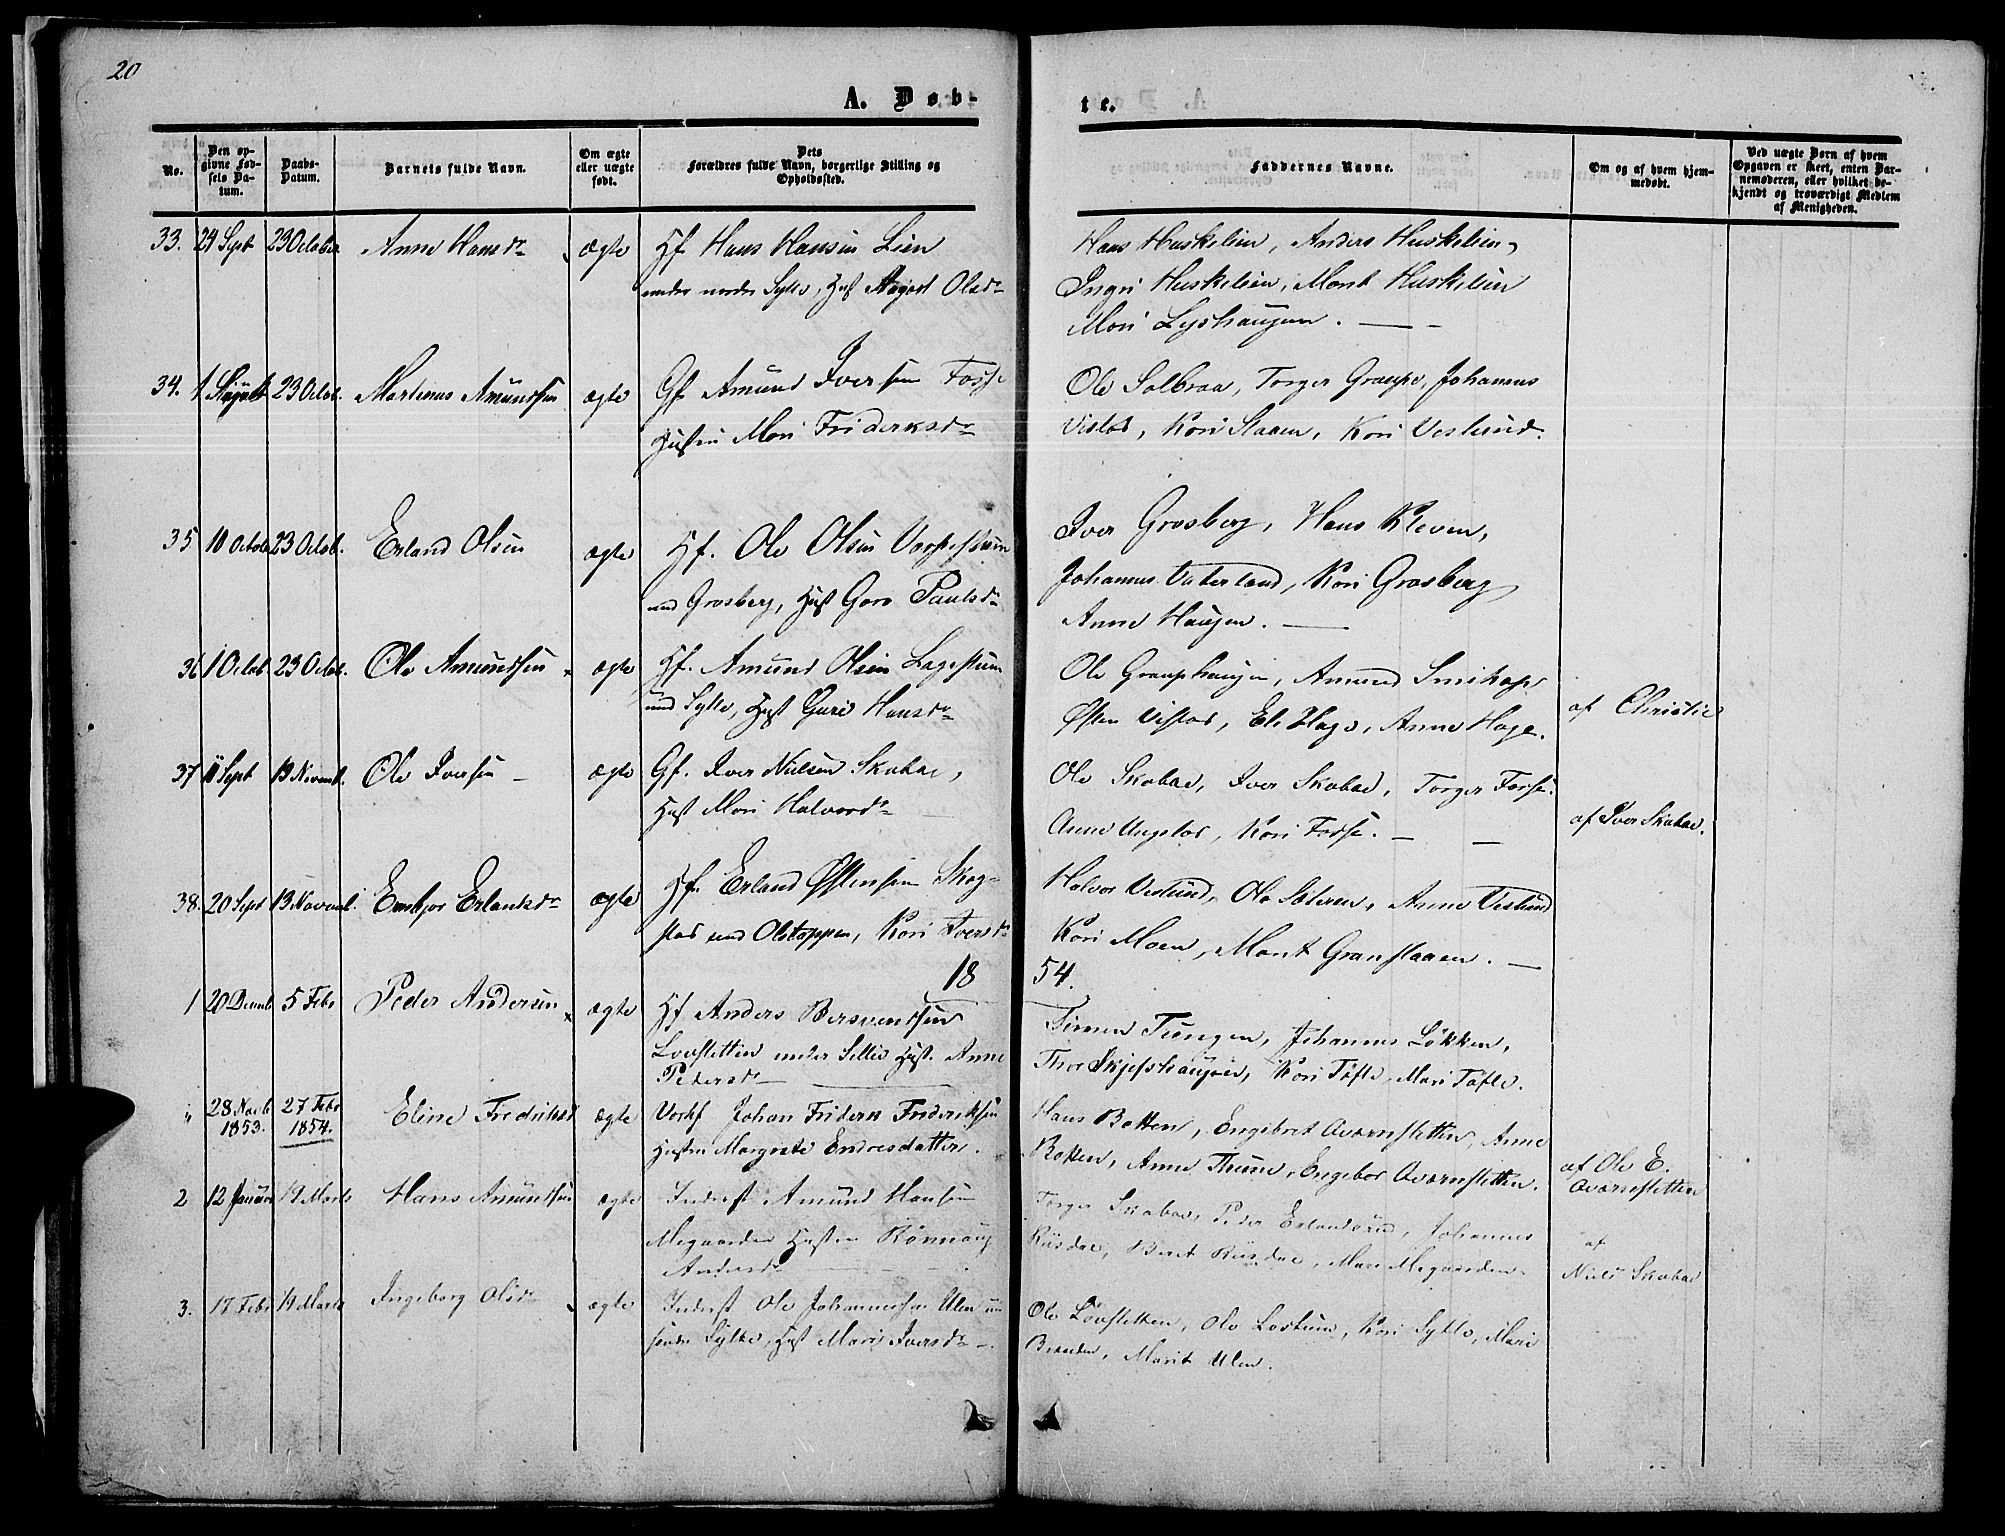 20
A. Døb-
te.
No.
Den op-
givne Fød-
sels Da-
tum.
Daabs-
Datum.
Barnets fulde Navn.
Om ægte
eller uægte
født.
Dets
Forældres fulde Navn, borgerlige Stilling og
Opholdssted.
Faddernes Navne.
Om og af hvem hjem-
medøbt.
Ved uægte Børn af hvem
Opgaven er skeet, enten Bar-
nemoderen, eller hvilket be-
kjendt og troværdigt Medlem
af Menigheden.
33. 24 Sept 23 October Anne Hansdr ægte Hf Hans Hansen Lien
under nordre Sylte, Hust Olsdr
Hans Huskelien, Anders Huskelien,
Ingri Huskelien, Marit Huskelien
Mari Lyshaugen.
34. 1 23 Octob. Martinus Amundsen ægte Gf. Amund Iversen Fosse
Hustru Mari Frideriksdr
Ole Solbraa, Torger Graupe, Johannes
Vistad, Kari Slaaen, Kari Veslund.
35 10 Octob 23 Octob. Erland Olsen ægte Hf. Ole Olsen
und Grosberg, Hust Goro Paulsdr
Iver Grosberg, Hans Kleven,
Johannes Vaterland, Kari Grosberg
Anne Haugen.
36 1 Octob. 23 Octob. Ole Amundsen ægte Hf. Amund Olsen
und Sylte, Hust Guri Hansdr
Ole Graupehaugen, Amund
Østen Vistad, Eli Hage, Anne Hage.
af Christie
37 11 Sept 13 Novemb. Ole Iversen ægte Gf. Iver Nielsen Skabae,
Hust Mari Halvorsdr
Ole Skabae, Iver Skabae, Torger Fosse.
Anne Kari Fosse.
af Iver Skabae.
38. 20 Sept 13 Novemb. Embjør Erlandsdr ægte Hf. Erland Østensen Skog-
stad und Olstappen, Kari Iversdr
Halvor Veslund, Ole Sæteren, Anne Veslund
Kari Moen, Marit Granslaaen.
18 54.
1 20 Decemb 5 Febr Peder Andersen ægte Hf Anders Bersvendsen
Lovstetten under Hust. Anne
Pedersdr
Simen Tungen, Johannes Løkken,
Thor Skjefshaugen, Kari Tøfte, Mari Tøfte.
" 28 Novb 27 Febr Eline Fredriksd ægte Johan Friderik Frideriksen
1853. 1854. Hustru Margrete Endresdatter.
Hans Bakken, Engebret Aværnstetten, Anne
Bakken, Anne Thune, Engebor Aværnstetten.
af Ole E.
Aværnstetten
2 12 Januar 19 Marts Hans Amundsen ægte Inderst Amund Hansen
Megaarden Hustru Rønnaug
Andersdr
Torger Skabae, Peder Johannes
Riisdae, Berit Riisdae, Mari Megaarden.
af
Niels Skabae
3. 17 Febr 19 Marts Ingeborg Olsdr ægte Inderst Ole Johannessen Ulen
søndre Sylte, Hust Mari Iversdr
Ole Løvstetten, Ole Kari Sylte, Mari
Marit Ulen.